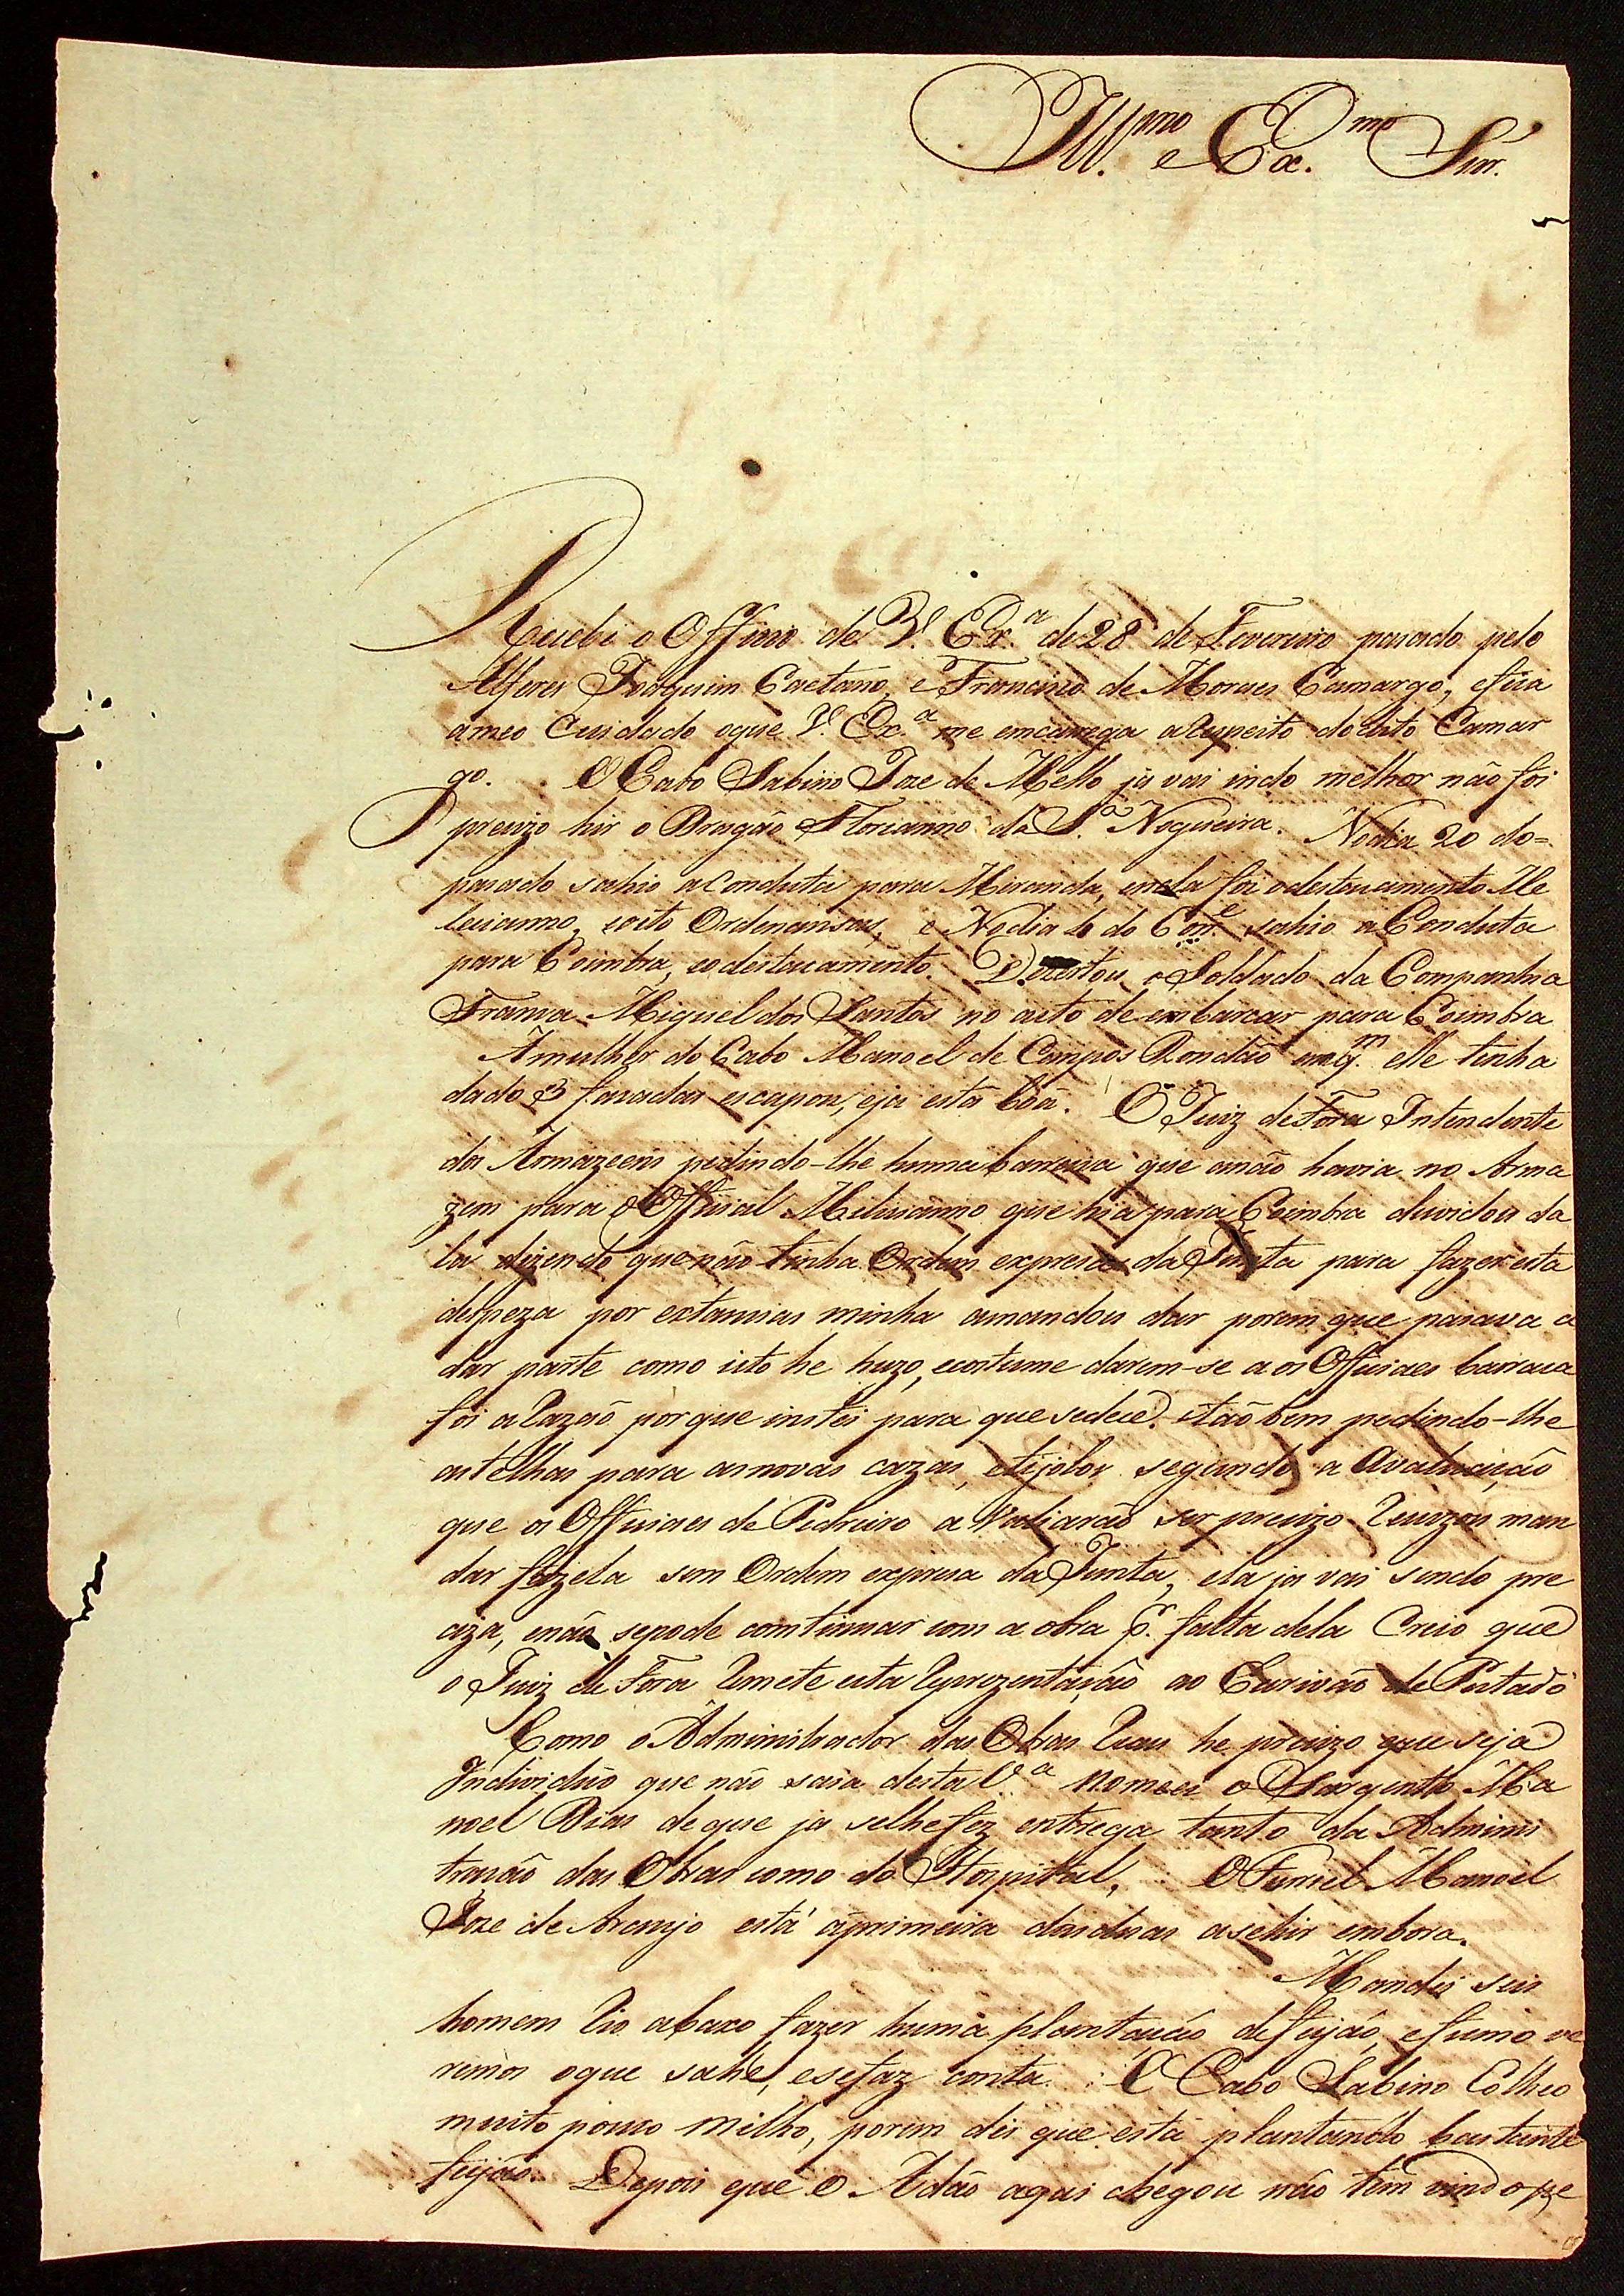 Ill.mo e Ex.mo Snr.
Recebi o Officio de V. Ex.a de 28 de Fevereiro pasado pelo
Alferes Joaquim Caetano, e Francisco de Moraes Camargo, e fica
a meo Cuidado oque V. Ex.a me emcarrega a Respeito do dito Camar
go. O Cabo Sabino Joze de Mello ja vai indo melhor não foi
precizo hir o Dragão Florianno da S.a Nogueira. No dia 20 do=
pasado sahio a Conduta para Miranda, enela foi o destacamento Me
licianno, e oito Ordenansas, e No dia 4 do Corr.e sahio a Conduta
para Coimbra, eo destacamento. Dezertou o Soldado da Companhia
Franca Miguel dos Santos no acto de embarcar para Coimbra
A mulher do Cabo Manoel de Campos Rondão em q.m elle tinha
dado 3 facadas escapou, eja está bôa. O Juiz de Fora Intendente
dos Armazeens pedindo-lhe huma barraca que anão havia no Arma
zem para o Official Milicianno que hia para Coimbra duvidou da
la dizendo que não tinha Ordem expresa da Junta para fazer esta
despeza por extancias minha amandou dar porem que pasava a
dar parte como isto he huzo, ecostume darem-se a os Officiaes barraca
foi a Razaõ porque instei para que sedece. Etão bem pedindo-lhe
as telhas para as novas cazas, etijolos segundo a Avaluação
que os Officiaes de Pedreiro a Valiarão ser precizo Recuzou man
dar fazela sem Ordem expresa da Junta, ela ja vai sendo pre
ciza, enão sepode comtinuar com a obra p.r falta dela Creio que
o Juiz de Fora Remete esta Reprezentação ao Escrivão Deputado
Como o Administrador das Obras Reaes he precizo que seja
Individuo que não saia desta V.a nomeei o Sargento Ma
noel Dias de que ja selhefez entrega tanto da Adminis
tração das Obras como do Hospital, O Furriel Manoel
Joze de Araujo está áprimeira das duas asehir embora.
Mandei seis
homem Rio abaxo fazer huma plantação defeijão, efumo ve
remos oque sahe, esefaz conta. O Cabo Sabino Colheo
muito pouco milho, porem dis que está plantando bastante
feijão. Depois que o Adão aqui chegou não tem vindo pe